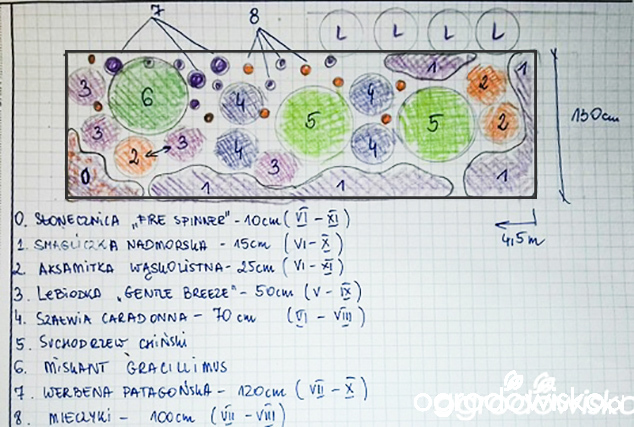 7 8
L L L L
3 6 4 5 4 1 2 1
3 2 3 4 3 4 5 2
0 1 1 1
130cm
4,5m
0. SŁONECZNICA „FIRE SPINNER" - 10cm (VI - XI)
1. SMAGLICZKA NADMORSKA - 15cm (VI - X)
2. AKSAMITKA WĄSKOLISTNA - 25cm (VI - XI)
3. LEBIODKA „GENTLE BREEZE" - 50cm (V - IX)
4. SZAŁWIA CARADONNA - 70 cm (VI - VIII)
5. SUCHODRZEW CHIŃSKI
6. MISKANT GRACILLIMUS
7. WERBENA PATAGOŃSKA - 120cm (VII - X)
8. MIECZYKI - 100cm (VII - VIII)